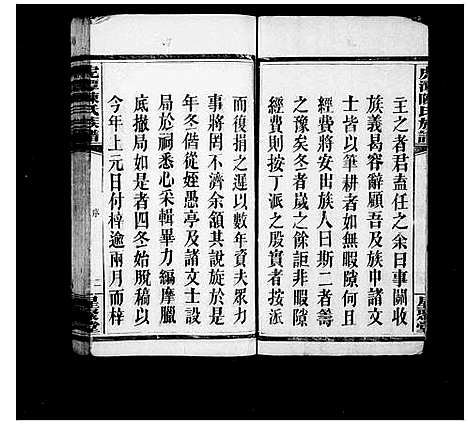 主之者君盍任之余曰事關收
族義曷容辭顧吾及族中諸文
士皆以筆耕者如無暇隙何且
經費將安出族人曰斯二者籌
之豫矣冬者歲之餘詎非暇隙
經費則按丁派之殷實者按派
而復捐之遲以數年資夫眾力
事將罔不濟余頷其說旋於是
年冬偕從姪愚亭及諸文士設
局於祠悉心采輯畢力編摩臘
底撤局如是者四冬始脫稿以
今年上元日付梓逾兩月而梓
陳氏族譜
序
二
星聚堂